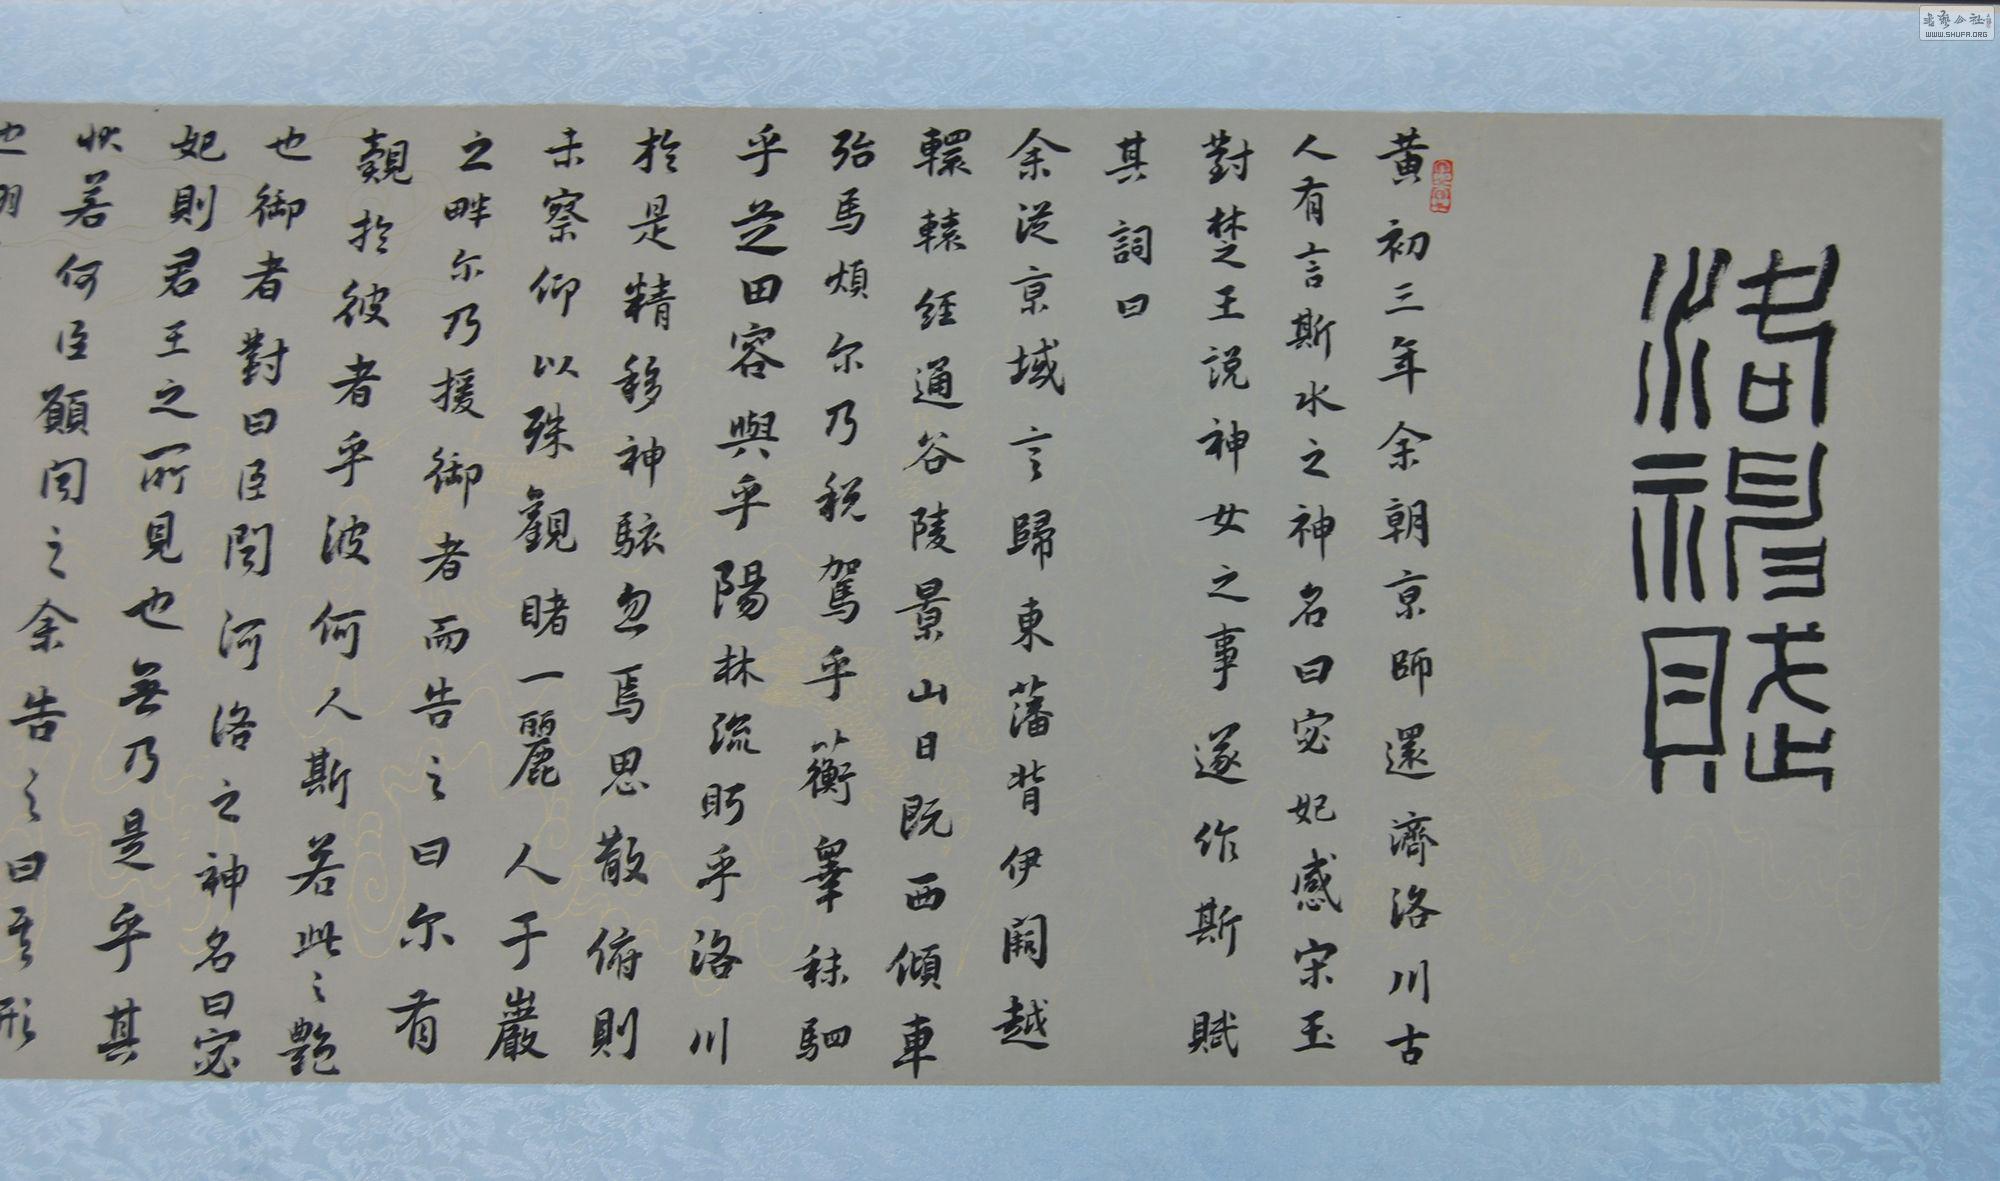 洛神賦
黄初三年余朝京師還濟洛川古
人有言斯水之神名曰宓妃感宋玉
對楚之王説神女之事遂作斯賦
其詞曰
余從京域言歸東藩背伊闕越
轘轅經通谷陵景山日既西傾車
殆馬煩尔乃税駕乎蘅皋秣駟
乎芝田容與乎陽林流眄乎洛川
於是精移神駭忽焉思散俯則
未察仰以殊觀睹一麗人于巖
之畔尔乃援御者而告之曰尔有
覿於彼者乎彼何人斯若此之艶
也御者對曰臣聞河洛之神名曰宓
妃則君王之所見也無乃是乎其
狀若何臣願聞之余告之曰其形
也翩
WWW.SHUFA.ORG